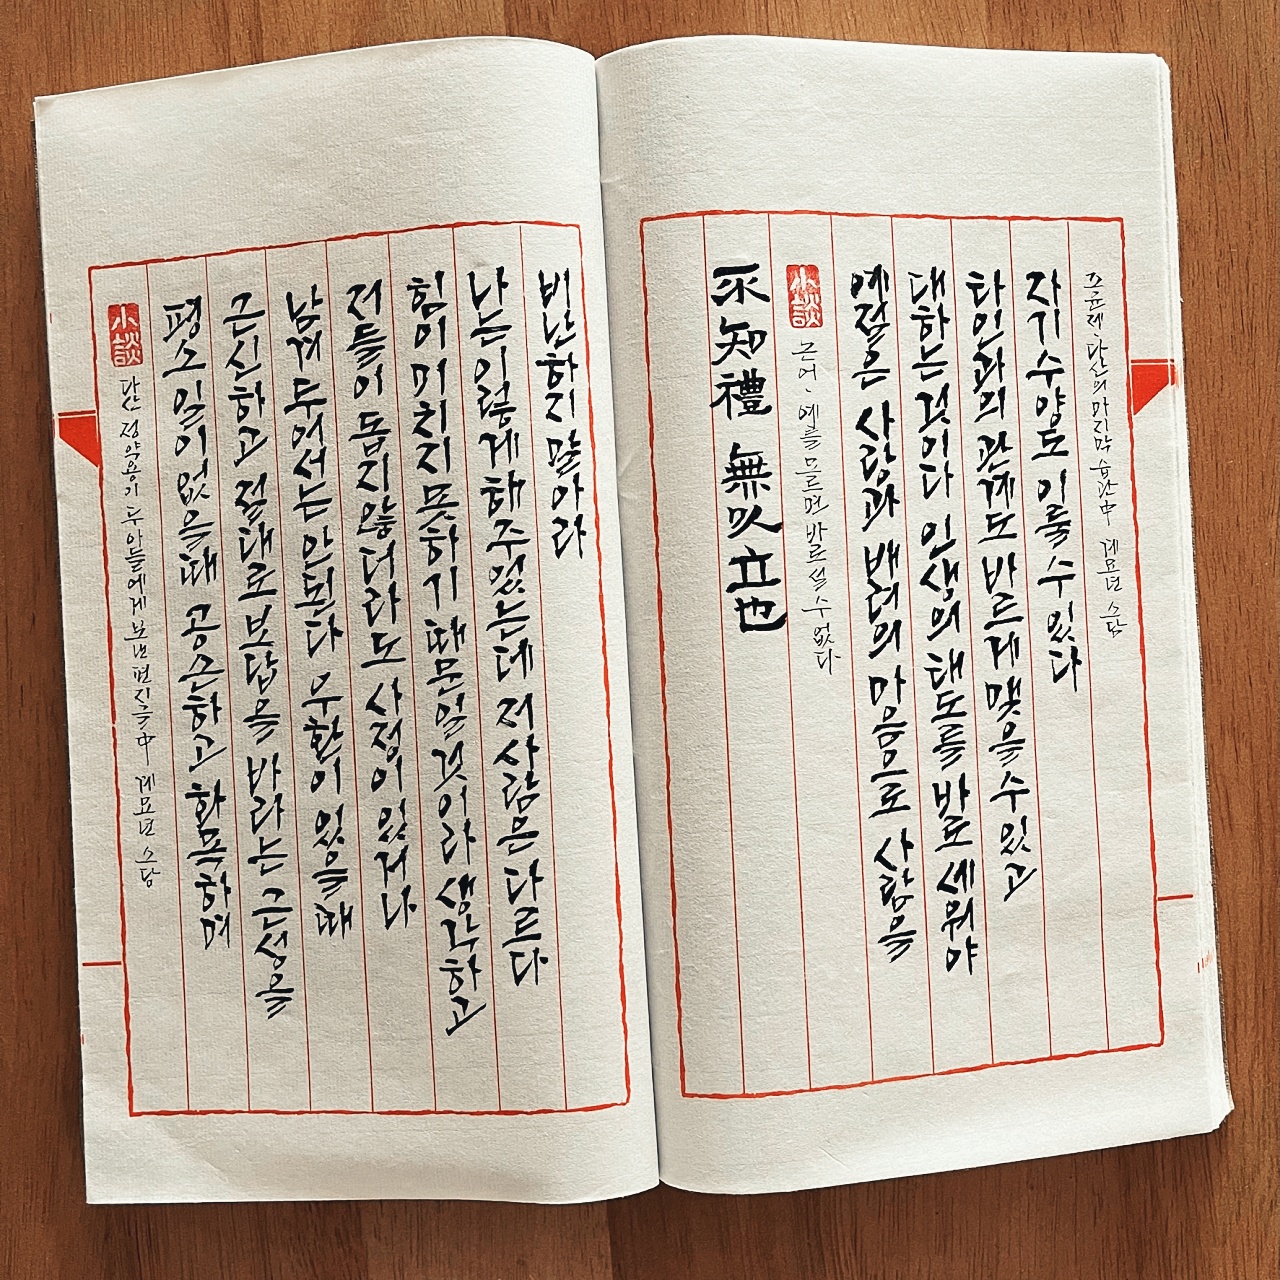 小談
다산 정약용이 두 아들에게 보낸 편지글中 계묘년 소담
평소 일이 없을때 공손하고 화목하며
근신하고 절대로 보답을 바라는 근성을
남겨 두어서는 안된다 우환이 있을 때
저들이 돕지 않더라도 사정이 있거나
힘이 미치지 못하기 때문일 것이라 생각하고
나는 이렇게 해 주었는데 저 사람은 다르다
비난하지 말아라
不知禮 無以立也
小談
논어, 예를 모르면 바로설수 없다
예절은 사람과 배려의 마음으로 사람을
대하는 것이다 인생의 태도를 바로 세워야
타인과의 관계도 바르게 맺을 수 있고
자기수양도 이룰 수 있다
조윤제, 다산의 마지막 습관中 계묘년 소담